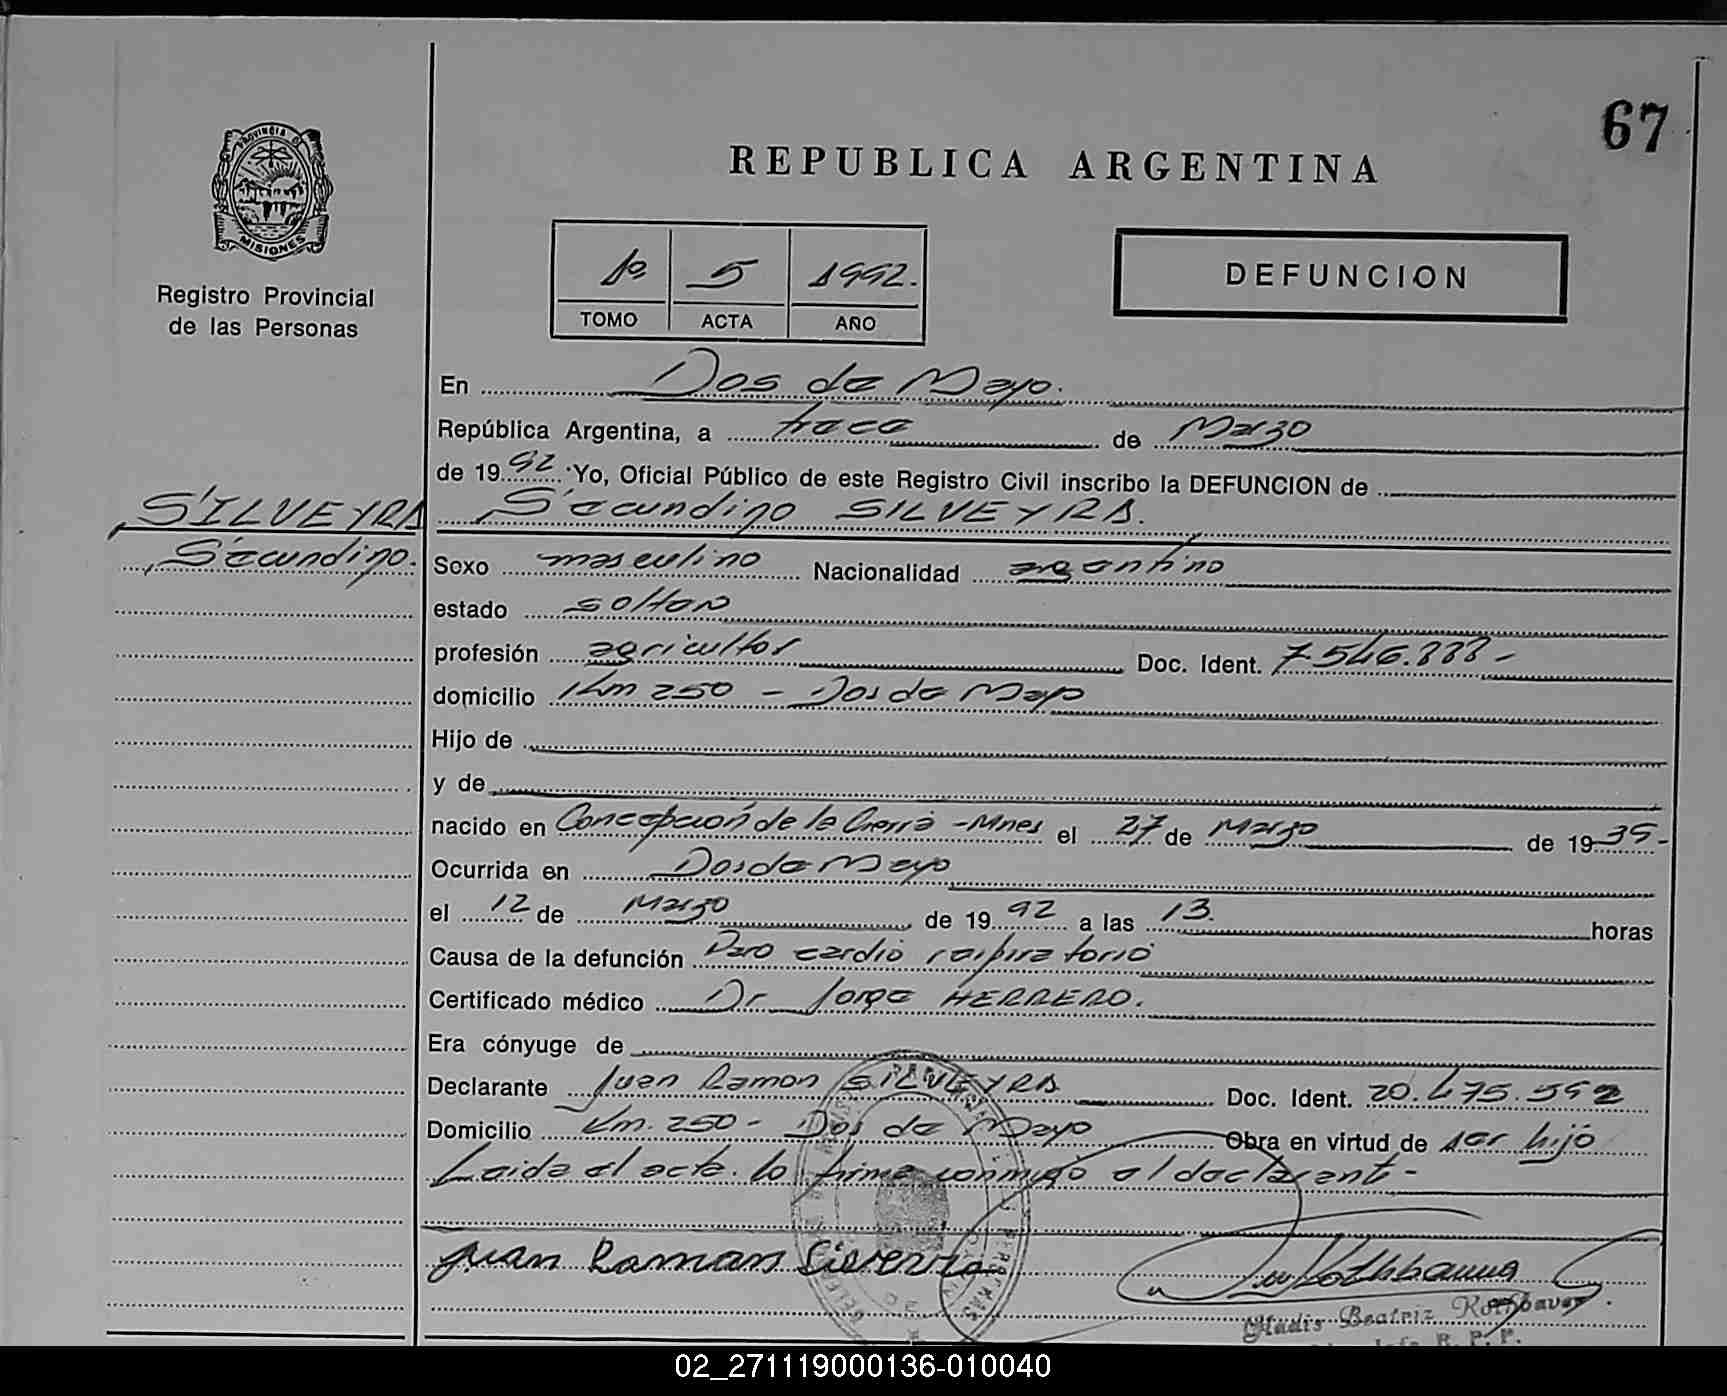 67
PROVINCIA DE
MISIONES
Registro Provincial
de las Personas
REPUBLICA ARGENTINA
1º 5 1992.
TOMO ACTA AÑO
DEFUNCION
En Dos de Mayo.
República Argentina, a trece de Marzo
de 1992 Yo, Oficial Público de este Registro Civil inscribo la DEFUNCION de
SILVEYRA Secundino SILVEYRA.
Secundino. Sexo masculino Nacionalidad argentino
estado soltero
profesión agricultor Doc. Ident. 7.546.888-
domicilio Km 250 - Dos de Mayo
Hijo de
y de
nacido en Concepción de la Cierra - Mnes el 27 de Marzo de 1935-
Ocurrida en Dos de Mayo
el 12 de Marzo de 1992 a las 13. horas
Causa de la defunción Paro cardio respiratorio
Certificado médico Dr Jorge HERRERO.
Era cónyuge de
Declarante Juan Ramon SILVEYRA Doc. Ident. 20.475.592
Domicilio Km. 250 - Dos de Mayo Obra en virtud de ser hijo
Leida el acta. lo firma conmigo el declarante-
Juan Raman
Gladis Beatriz Rothbauer
R. P. P.
02_271119000136-010040